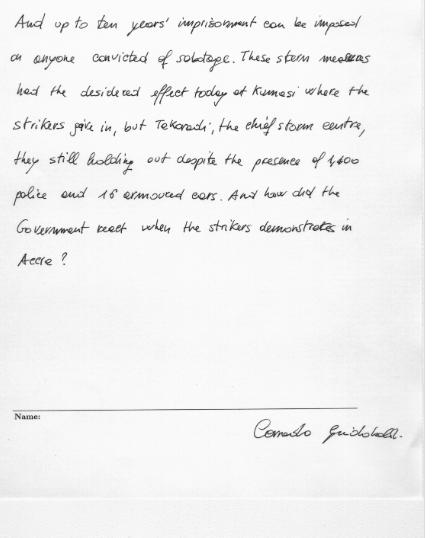 And up to ten years' imprisonment can be imposed
on anyone convicted of sabotage. These stern measures
had the desidered effect today at Kumasi where the
strikers give in, but Takoradi, the chief storm centre,
they still holding out despite the presence of 1,400
police and 16 armoured cars. And how did the
Government react when the strikers demonstrates in
Accra?
Name: